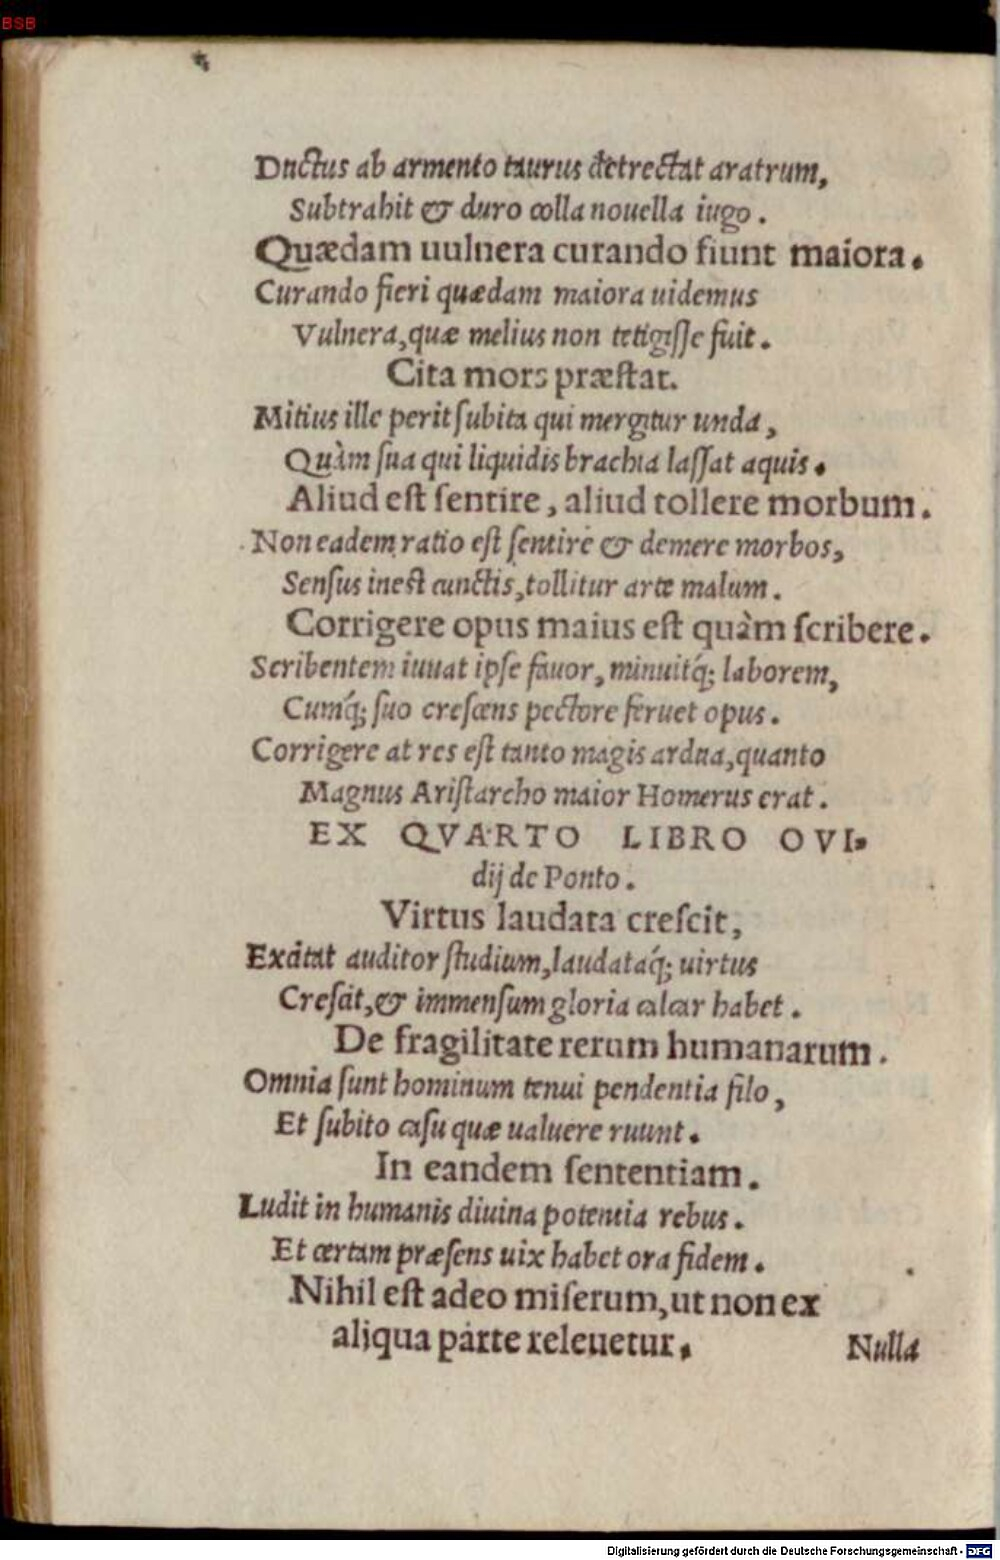 BSB
Ductus ab armento taurus detrectat aratrum,
Subtrahit & duro colla nouella iugo.
Quædam uulnera curando fiunt maiora.
Curando fieri quædam maiora uidemus
Vulnera, quæ melius non tetigiſſe fuit.
Cita mors præſtat.
Mitius ille perit ſubita qui mergitur unda,
Quàm ſua qui liquidis brachia laſſat aquis.
Aliud eſt ſentire, aliud tollere morbum.
Non eadem ratio eſt ſentire & demere morbos,
Senſus ineſt cunctis, tollitur arte malum.
Corrigere opus maius eſt quàm ſcribere.
Scribentem iuuat ipſe fauor, minuitq́; laborem,
Cumq́; ſuo creſcens pectore feruet opus.
Corrigere at res eſt tanto magis ardua, quanto
Magnus Ariſtarcho maior Homerus erat.
EX QVARTO LIBRO OVI-
dij de Ponto.
Virtus laudata creſcit,
Excitat auditor ſtudium, laudataq́; uirtus
Creſcit, & immenſum gloria calcar habet.
De fragilitate rerum humanarum.
Omnia ſunt hominum tenui pendentia filo,
Et ſubito caſu quæ ualuere ruunt.
In eandem ſententiam.
Ludit in humanis diuina potentia rebus.
Et certam præſens uix habet ora fidem.
Nihil eſt adeo miſerum, ut non ex
aliqua parte releuetur.
Nulla
Digitalisierung gefördert durch die Deutsche Forschungsgemeinschaft - DFG